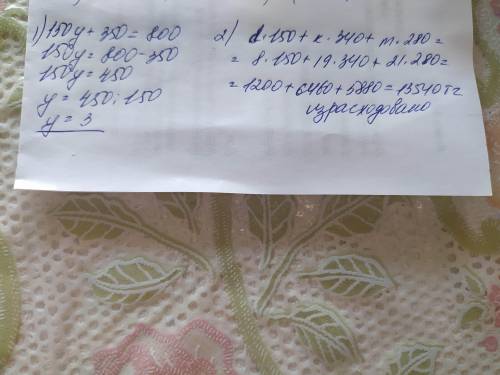 1) 150y + 350 = 800
150y = 800 - 350
150y = 450
y = 450 : 150
y = 3
2) d · 150 + k · 340 + m · 280 =
= 8 · 150 + 19 · 340 + 21 · 280 =
= 1200 + 6460 + 5880 = 13540 тг
израсходовано